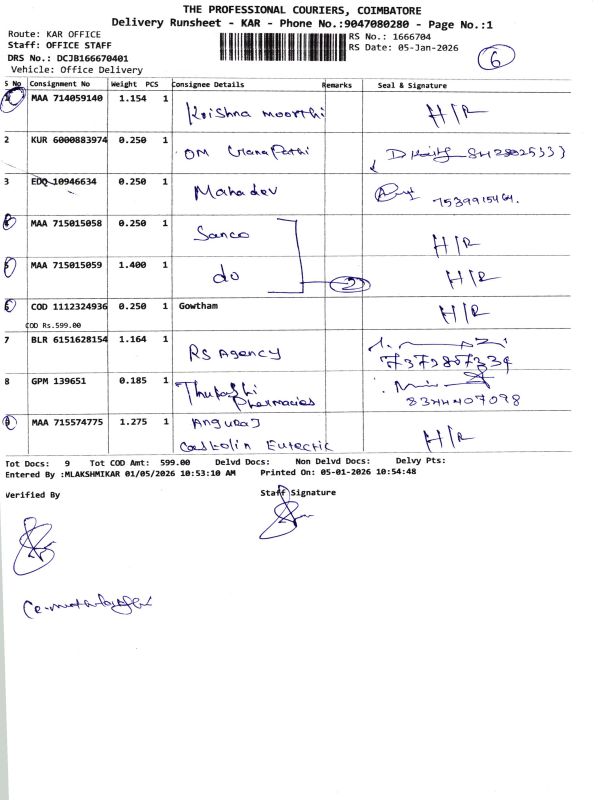 THE PROFESSIONAL COURIERS, COIMBATORE
Delivery Runsheet - KAR - Phone No.:9047080280 - Page No.:1
Route: KAR OFFICE
RS No.: 1666704
Staff: OFFICE STAFF
RS Date: 05-Jan-2026
6
DRS No.: DCJB166670401
Vehicle: Office Delivery
S No Consignment No Weight PCS Consignee Details Remarks Seal & Signature
1 MAA 714059140 1.154 1 Krishna moorthi H/R
2 KUR 6000883974 0.250 1 OM GanaPathi
3 EDQ 10946634 0.250 1 Mahadev 7539915464.
4 MAA 715015058 0.250 1 Sanco H/R
5 MAA 715015059 1.400 1 do 2 H/R
6 COD 1112324936 0.250 1 Gowtham H/R
COD Rs.599.00
7 BLR 6151628154 1.164 1 RS Agency 7373807339
8 GPM 139651 0.185 1 Pharmacies 8344407098
9 MAA 715574775 1.275 1 Anguraj
Castolin Eutectic H/R
Tot Docs: 9 Tot COD Amt: 599.00 Delvd Docs: Non Delvd Docs: Delvy Pts:
Entered By :MLAKSHMIKAR 01/05/2026 10:53:10 AM Printed On: 05-01-2026 10:54:48
Verified By Staff Signature